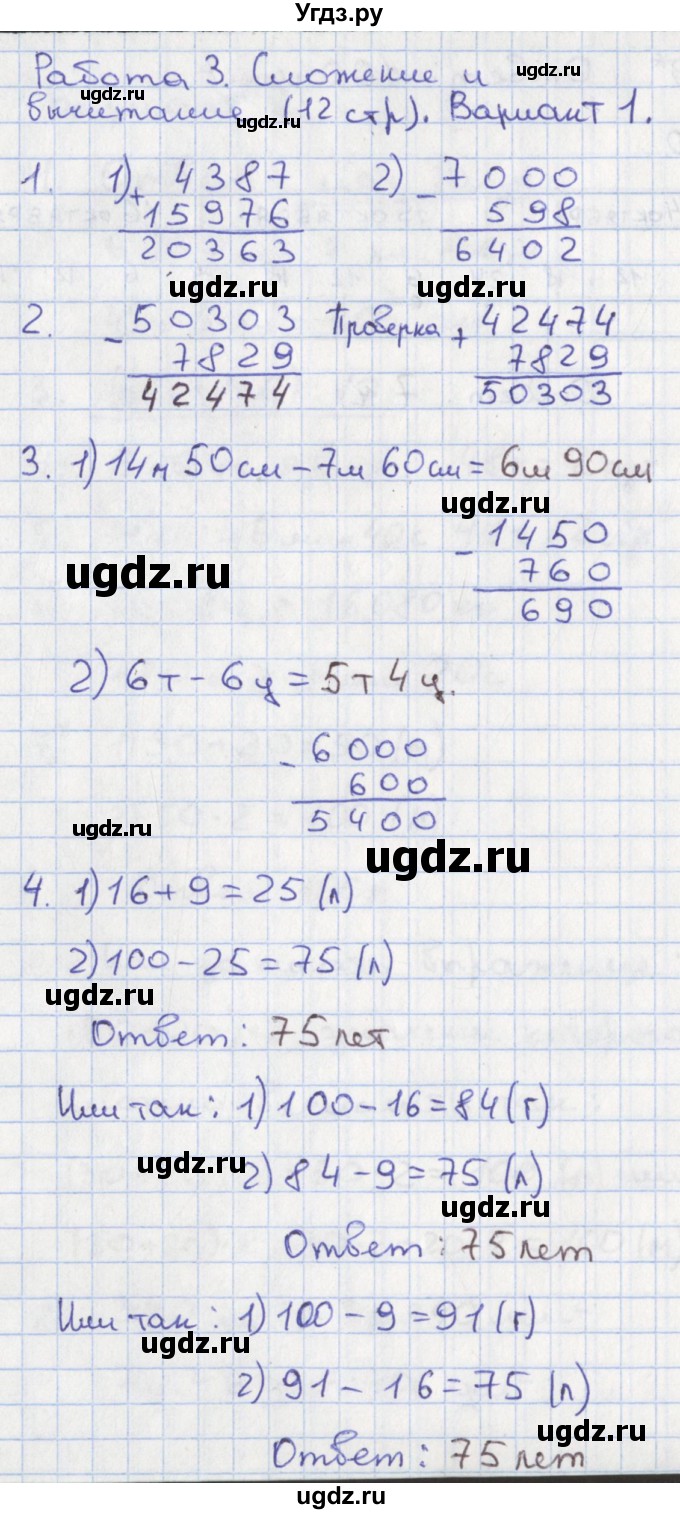 Угдз.ру
Работа 3. Сложение и ugdz.ru
ugdz.ru
вычитание (12 стр). Вариант 1.
ugdz.ru
1. 1) + 4387 2) - 7000
15976 598
20363 6402
ugdz.ru ugdz.ru
2. - 50303 Проверка + 42474
7829 7829
42474 50303
3. 1) 14м 50см - 7м 60см = 6м 90см
ugdz.ru
- 1450
ugdz.ru
760
690
2) 6т - 6ц = 5т 4ц.
- 6000
600
5400
ugdz.ru
ugdz.ru
4. 1) 16 + 9 = 25 (л)
2) 100 - 25 = 75 (л)
ugdz.ru
Ответ: 75 лет
Или так: 1) 100 - 16 = 84 (г)
ugdz.ru
2) 84 - 9 = 75 (л)
ugdz.ru
Ответ: 75 лет
Или так: 1) 100 - 9 = 91 (г)
ugdz.ru
2) 91 - 16 = 75 (л)
ugdz.ru
Ответ: 75 лет
ugdz.ru